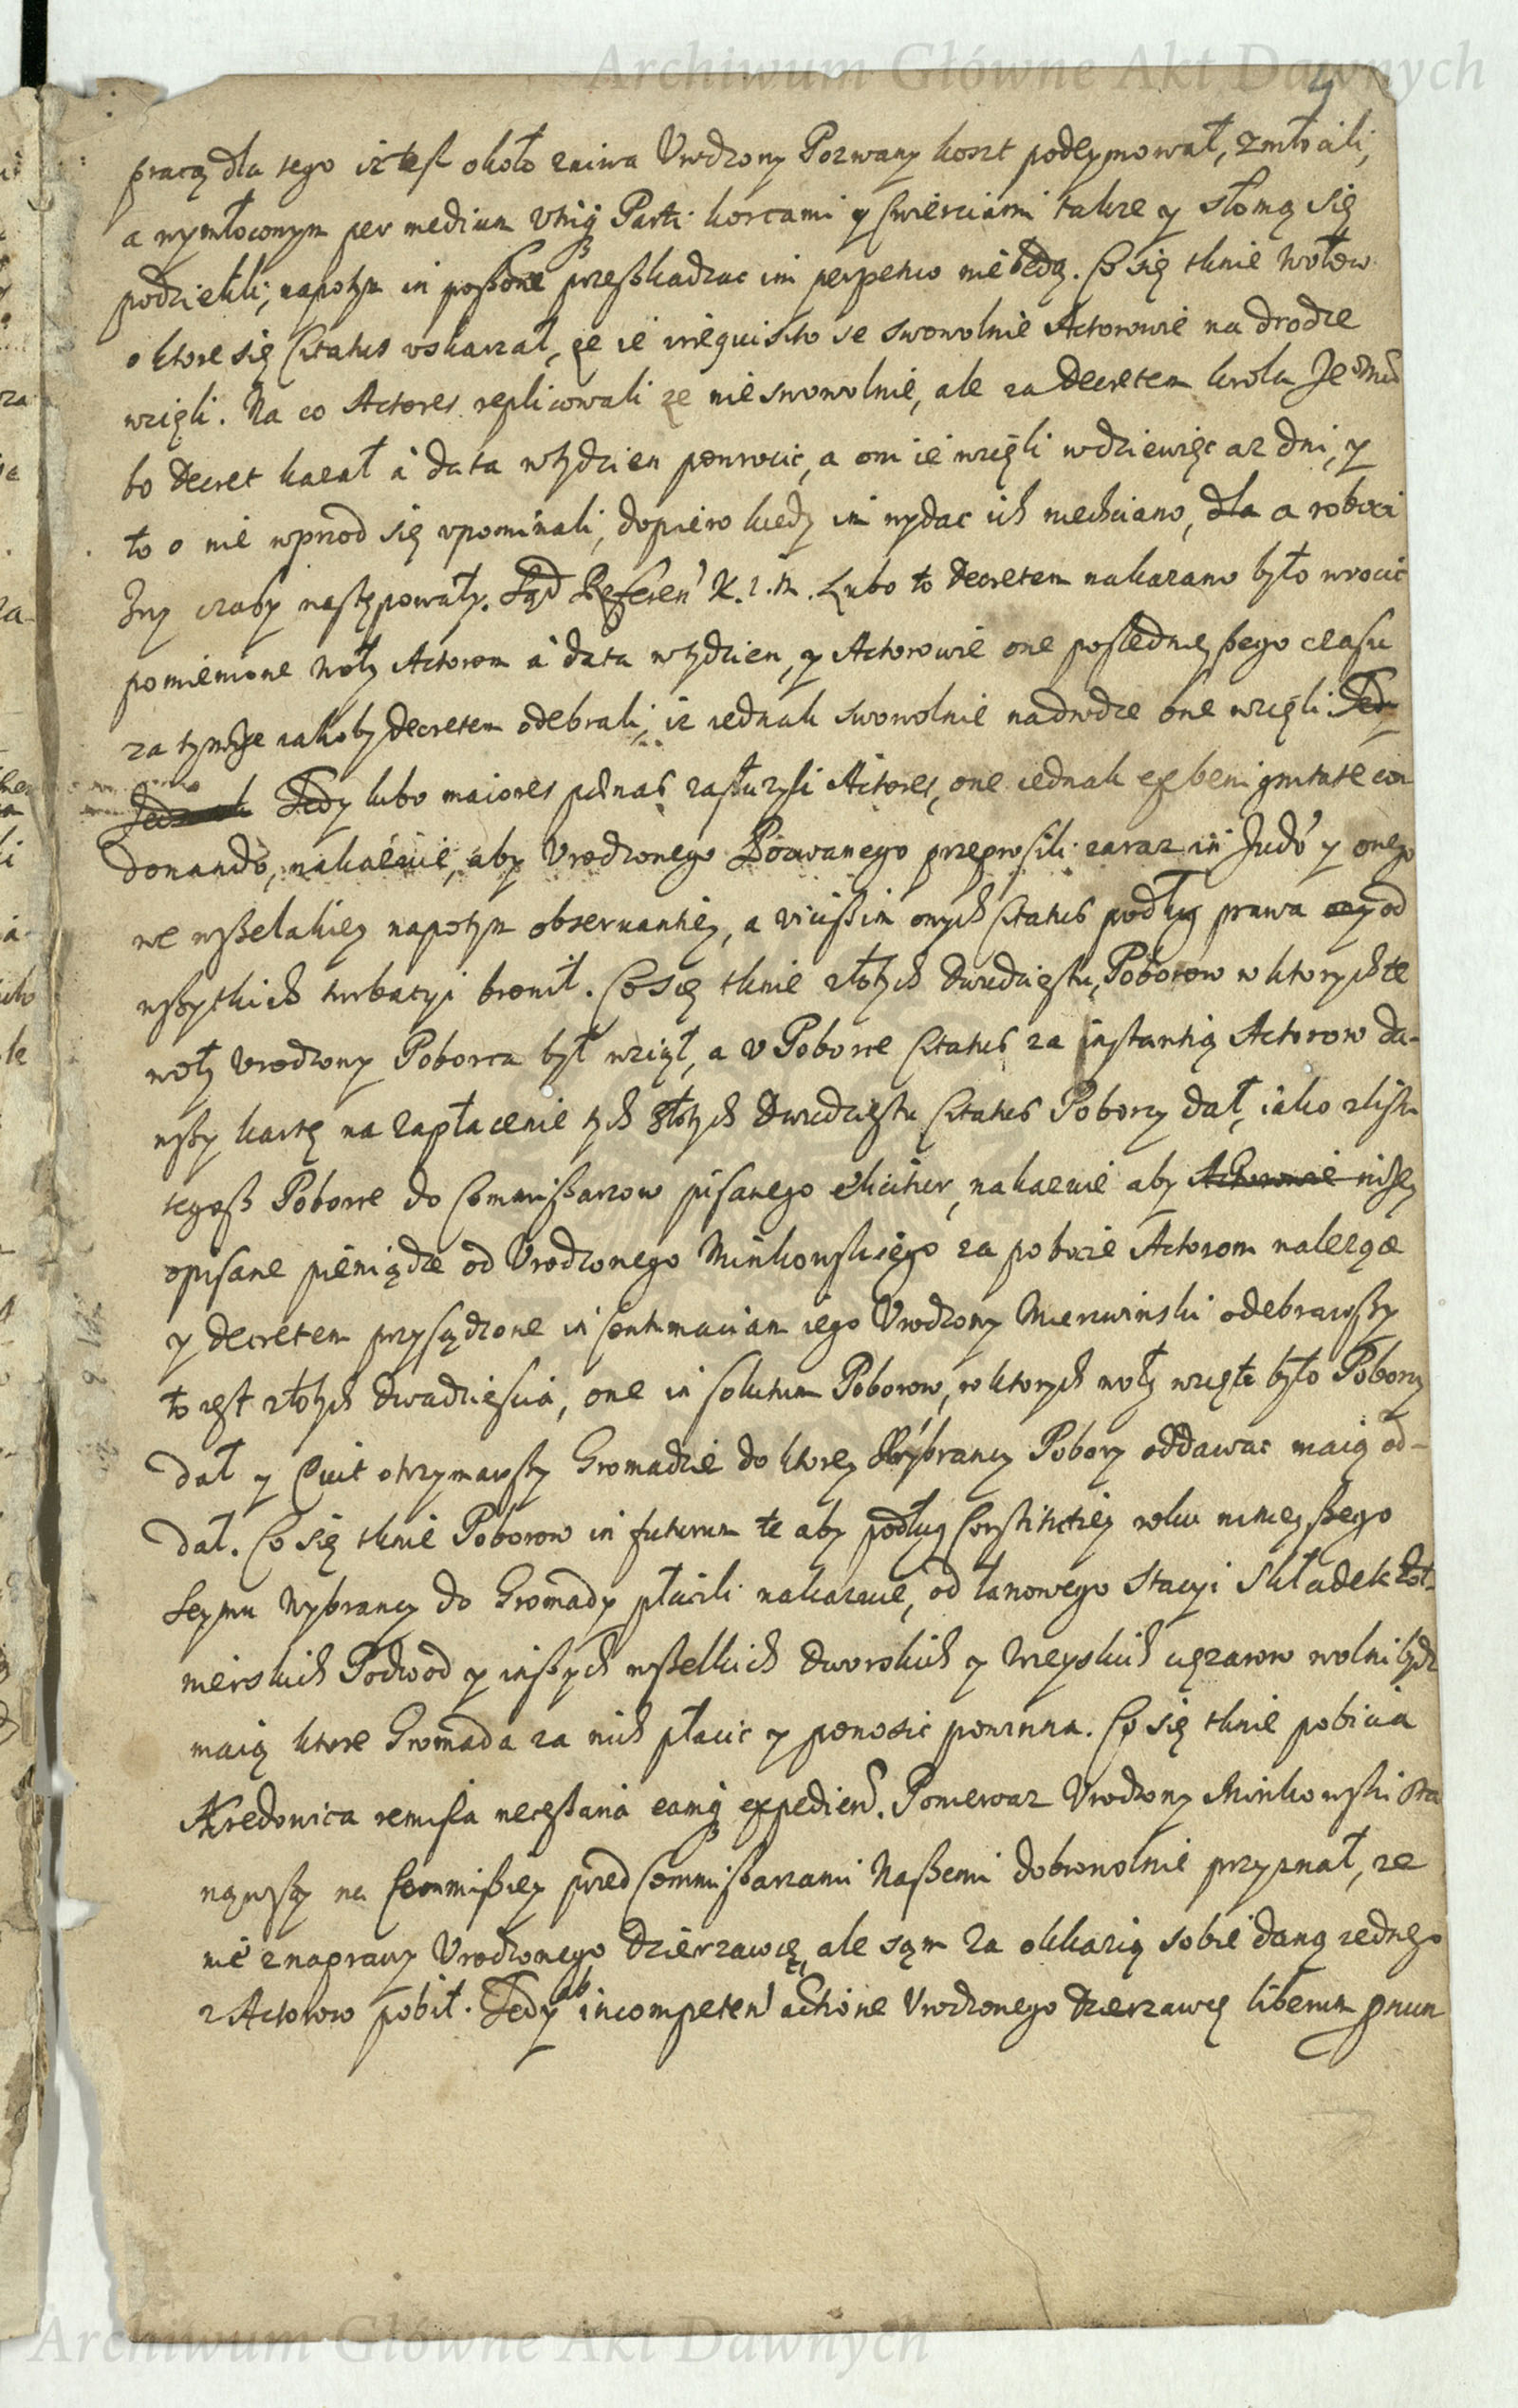 Archiwum Główne Akt Dawnych
9
pracą dla tego iż też około żniwa Vrodzony Pozwany koszt podeymował, zmłócili,
a wymłoconym per medium vtriq Parti korcami y cwierciami także y słomą się
podzielili, napotym in possone przeszkadzac im perpetuo nie będą. Co się tknie wołow
o ktore się Citatus vskarzał, że ie irrequisito se swowolnie Actorowie na drodze
wzięli. Na co Actores replicowali ze nie swowolnie, ale za Decretem krola Je°Mći
bo Decret kazał a data wtydzien powrocic, a oni ie wzięli wdziewięc aż dni, y
to o nie wprzod się vpominali, dopiero kiedy im wydac ich niechciano, dla a roboczi
Im czasy następowały. Sąd Referen K. J. M. Lubo to Decretem nakazano było wrocic
pomienione woły Actorom a data wtydzien, y Actorowie one poslednieyszego czasu
za tymże iakoby Decretem odebrali, iz iednak swowolnie nadrodze one wzięli Tedy
Tedy lubo maiores pœnas zasłuzyli Actores, one iednak ex benignitate con
donando, nakazuie, aby Vrodzonego Pozwanego przeprosili zaraz in Judo y onego
we wszelakiey napotym obserwantiey, a vicissim onych Citatus podług prawa od
wszytkich turbacyi bronił. Co się tknie złotych dwudziestu, Poborow w ktorych te
woły Vrodzony Poborca był wziął, a v Poborce Citatus za instantią Actorow da-
wszy kartę na zapłacenie tych złotych dwudziestu Citatus Poborcy dał, iako zlistu
tegosz Poborce do Commissarzow pisanego elicitur, nakazuie aby Actorowie niżey
opisane pieniądze od Vrodzonego Minkowskiego za pobicie Actorom nalezące
y Decretem przysądzone in contumaciam iego Vrodzony Mierzwinski odebrawszy
to iest złotych dwadziescia, one in solutum Poborow, w ktorych woły wzięte było Poborcy
dał y Cwit otrzymawszy Gromadzie do ktorey Wybrancy Pobory oddawac maią od-
dał. Co się tknie Poborow in futurum te aby podług Constitutiey roku ninieyszego
Seymu Wybrancy do Gromady płacili nakazuie, od łanowego Stacyi Składek Żoł-
nierskich Podwod y inszych wszelkich dworskich y wieyskich ciężarow wolni bydz
maią ktore Gromada za nich płacic y ponosic powinna. Co się tknie pobicia
Kredowica remissa necessaria eamq expedien. Poniewaz Vrodzony Minkowski sta
nąwszy na Commissiey przed Commissarzami Naszemi dobrowolnie przyznał, ze
nie z naprawy Vrodzonego Dzierzawcę, ale sąm za okkazią sobie daną iednego
z Actorow pobił. Tedy ab incompeten actione Vrodzonego Dzierzawcę liberum pnun
Archiwum Główne Akt Dawnych